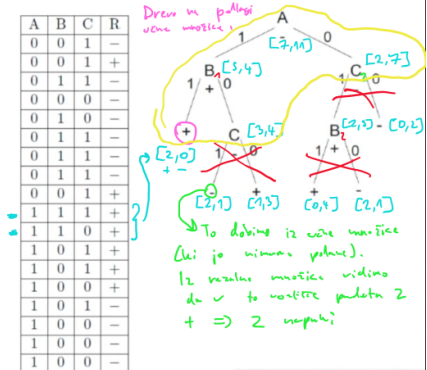 A B C R
0 0 1 −
0 0 1 +
0 1 1 −
0 0 0 −
0 1 0 −
0 1 1 −
0 1 1 −
0 1 1 −
0 0 1 +
1 1 1 +
1 1 0 +
1 0 1 +
1 0 1 +
1 0 0 +
1 0 1 −
1 0 0 −
1 0 0 −
1 0 0 −
Drevo na podlagi
učne množice.
A
1 - 0
[7,11]
B1 [5,4]
C2 [2,7]
1 + 0
1 0
+
C [3,4]
B2 [2,3]
- [0,2]
[2,0]
+ −
1 - 0
1 + 0
-
+
+
-
[2,1] [1,3] [0,4] [2,1]
To dobimo iz učne množice
(ki jo nimamo podane).
Iz množice vidimo
da v to 2
+ => 2 napaki